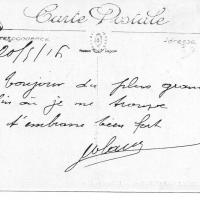 Carte Postale
CORRESPONDANCE
ADRESSE
20/5/16
bonjour du plus grand
où je me trouve
t'embrasse bien fort